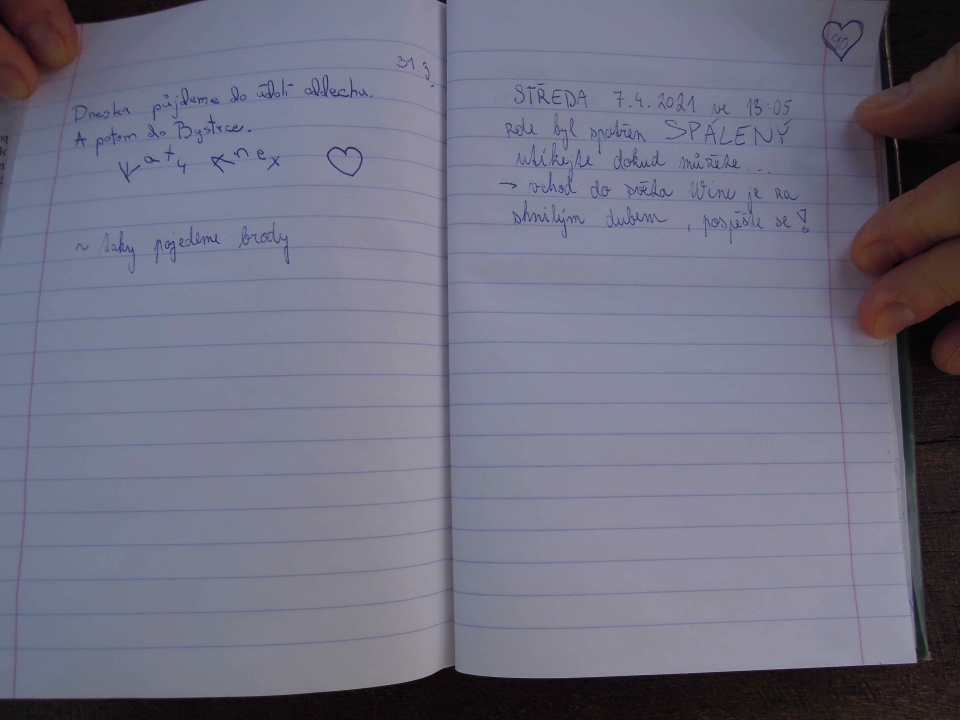 31.3.
Dneska půjdeme do údolí oddechu.
A potom do Bystrce.
Katy Knex
~ taky pojedeme brody
90
STŘEDA 7.4.2021 ve 13:05
zde byl spatřen SPÁLENÝ
utíkejte dokud můžete...
→ vchod do světa Winx je za
shnilým dubem, pospěšte se!